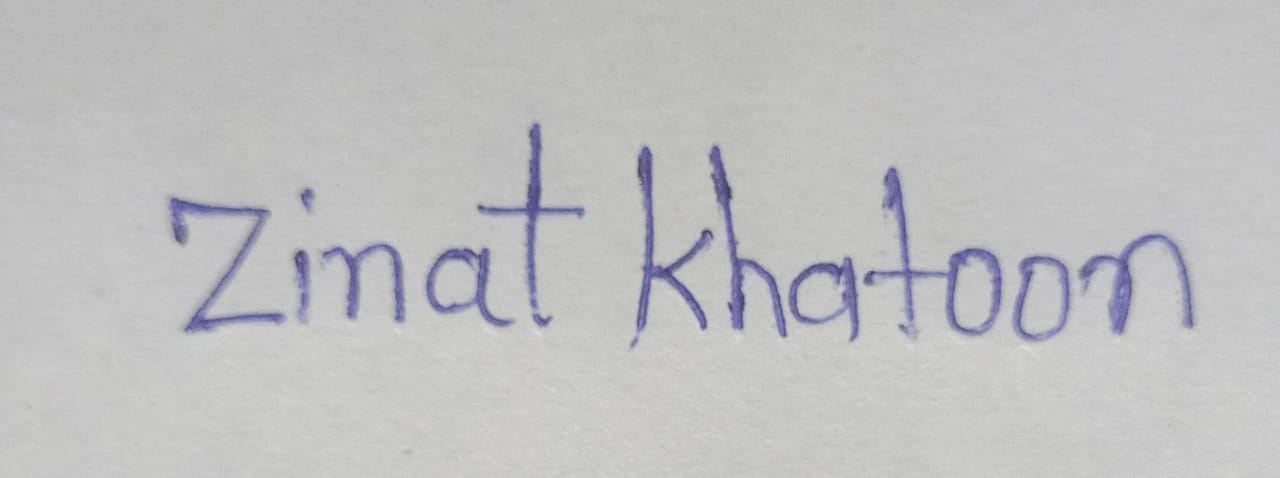 Zinat khatoon